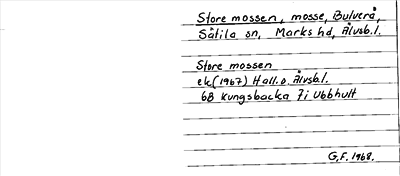 Store mossen, mosse, Bulverå,
Sätila sn, Marks hd, Älvsb.l.
Store mossen
ek (1967) Hall. o. Älvsb.l.
6B Kungsbacka 7i Ubbhult
G.F. 1968.